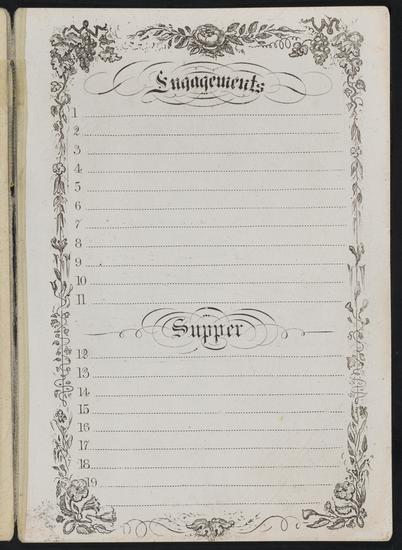 Engagements
1
2
3
4
5
6
7
8
9
10
11
Supper
12
13
14
15
16
17
18
19